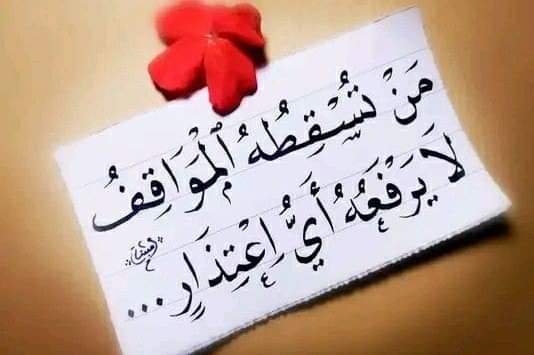 مَنْ تُسْقِطُهُ الْمَوَاقِفُ
لَا يَرْفَعُهُ أَيُّ اِعْتِذَارٍ...